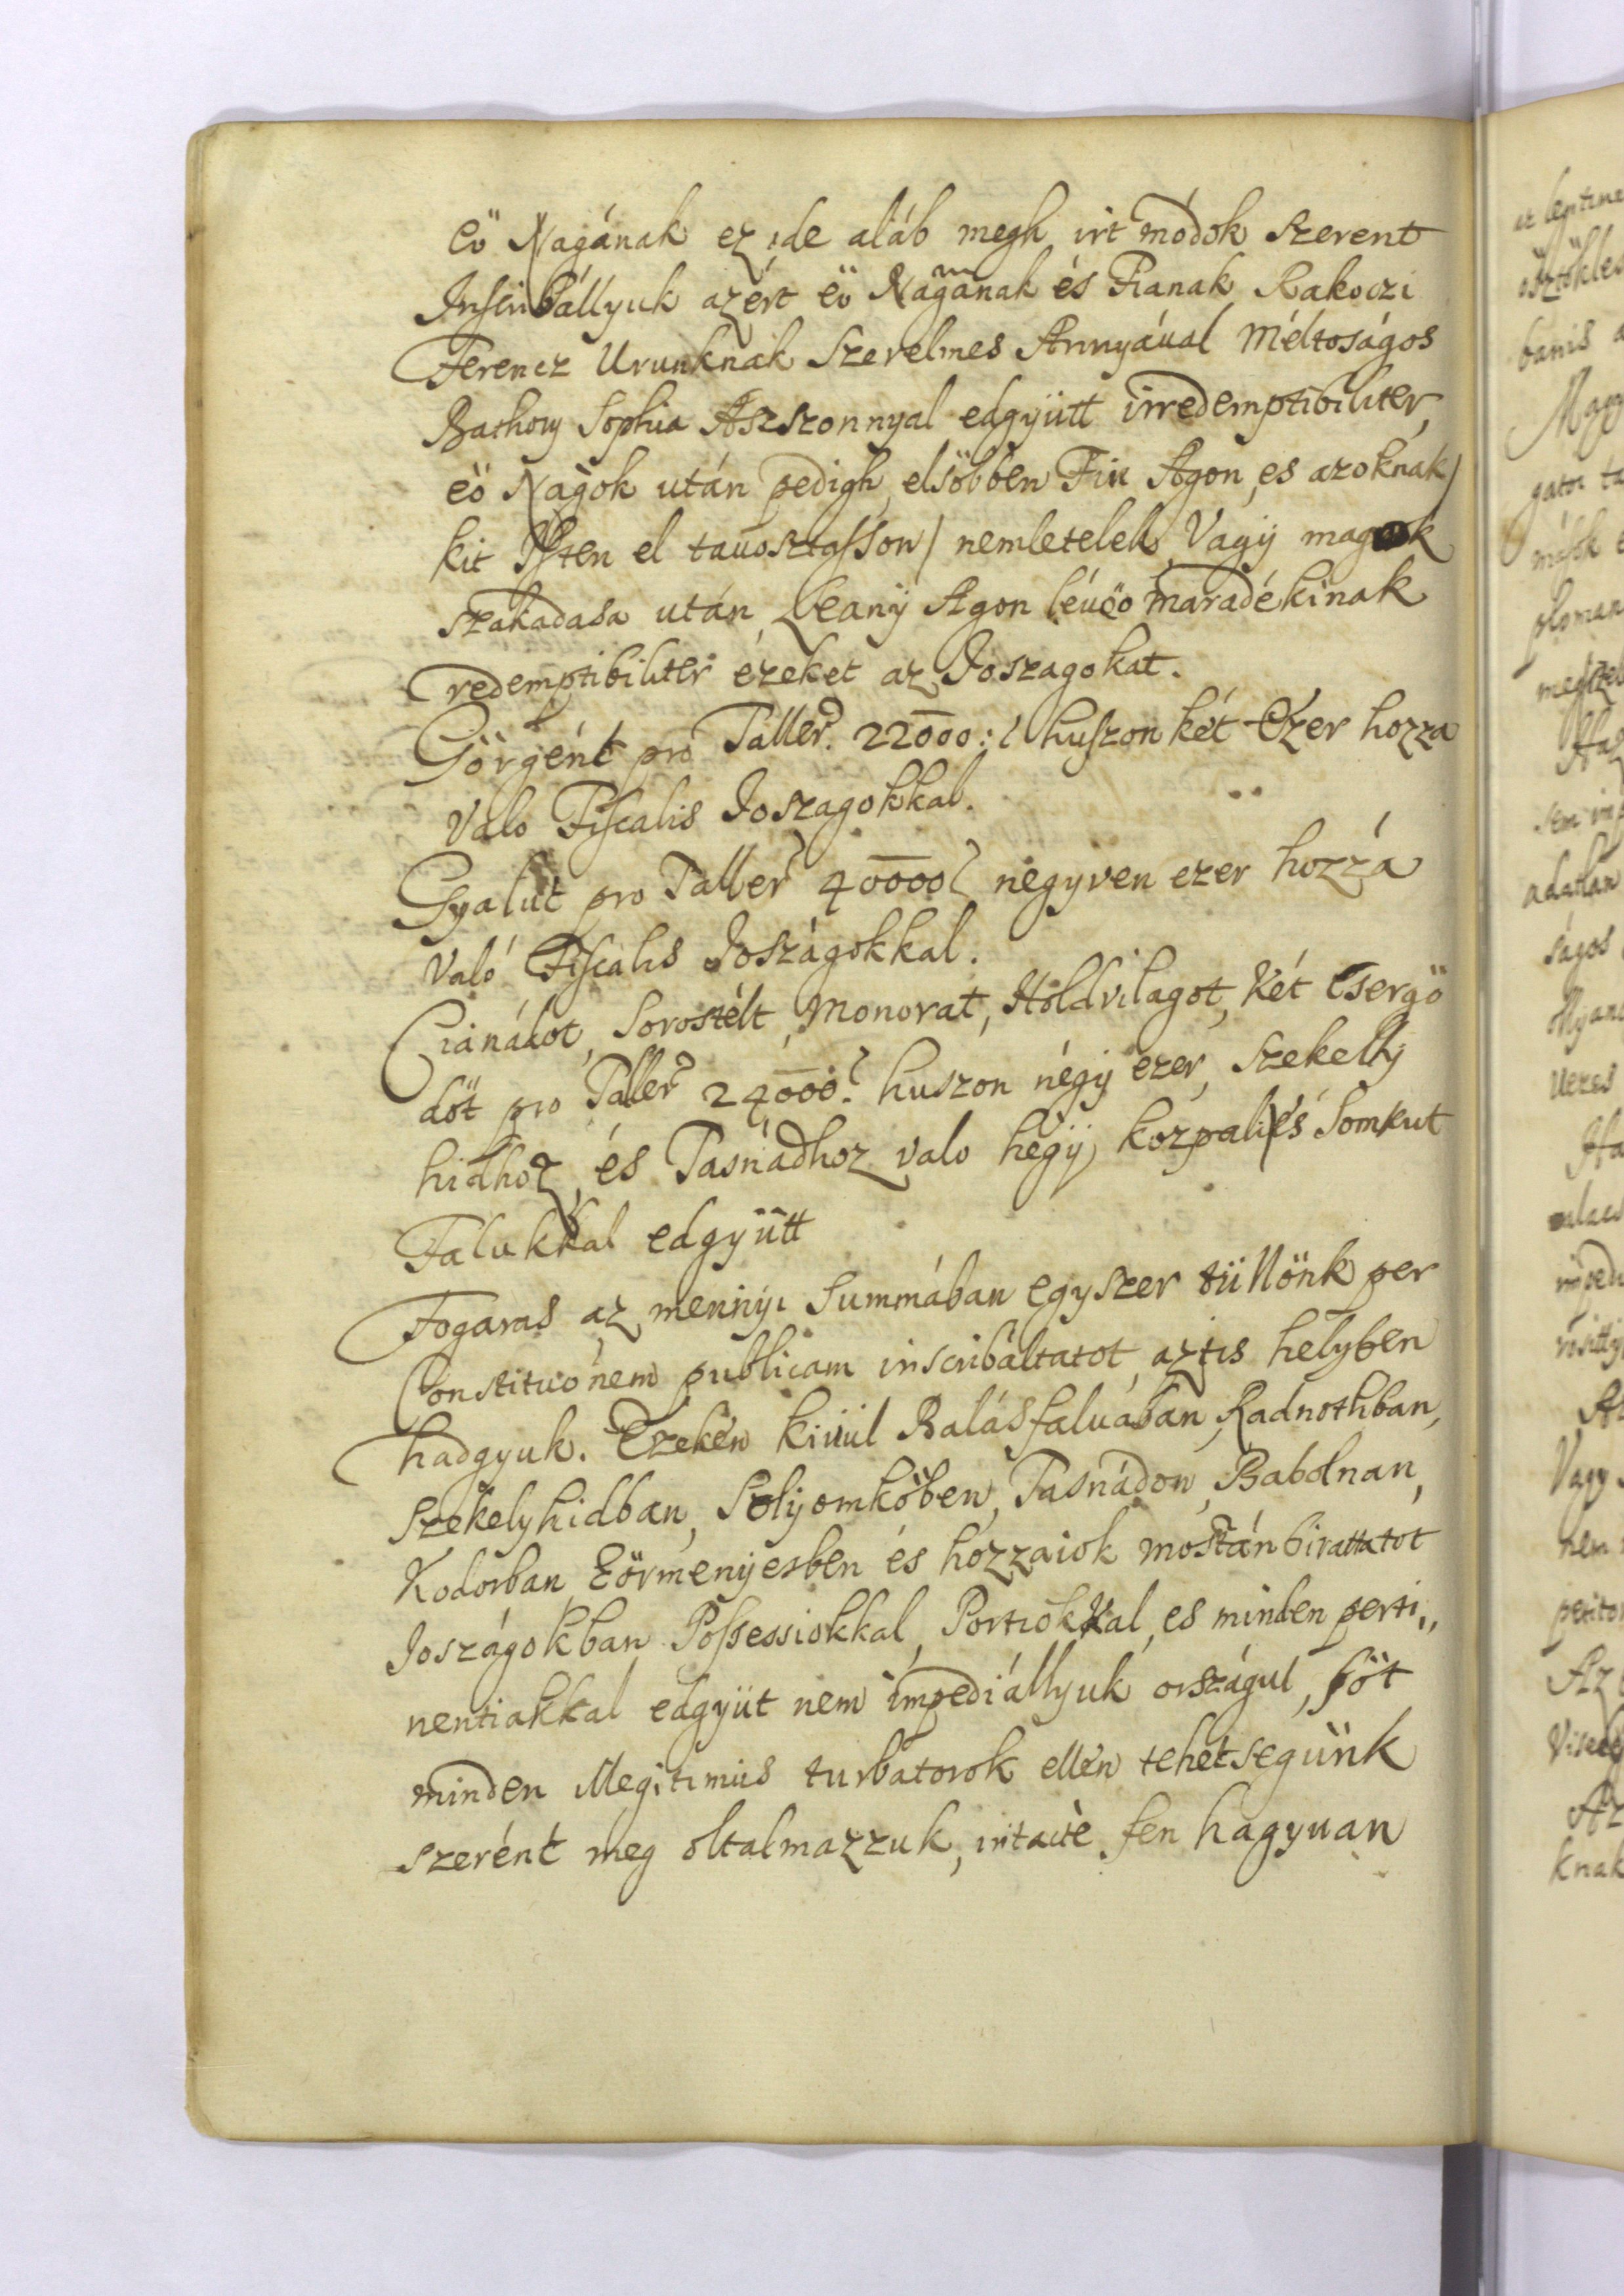 eö Nagának ez ide aláb megh irt módok szerent
Inscribállyuk azért eö Nagának és Fianak Rakoczi
Ferencz Urunknak Szerelmes Annyával Méltoságos
Bathory Sophia Aszszonnyal edgyütt irredemptibiliter,
eö Nagok után pedigh, elsöbben Fiu Agon, es azoknak /
kit Isten el tavosztasson / nemletelek Vagy magvok
szakadasa után, Leany Agon lévöö maradékinak
redemptibiliter ezeket az Joszagokat.
Görgént pro Taller. 22000: huszon két Ezer hozza
valo Fiscalis Joszagokkal.
Gyalut pro Taller 40000 negyven ezer hozzá
való Fiscalis Joszágokkal.
Cianádot, Sorostélt, Monorat, Holdvilagot, Két Csergö
döt pro Taller 24000. huszon négy ezer, Szekelly
hidhoz, és Tasnádhoz valo hegy, kozpali és Somkut
Falukkal edgyütt
Fogaras az mennyi Summában egyszer tüllönk per
Constitucionem publicam inscribáltatot, aztis helyben
hadgyuk. Ezeken kivül Balásfalvában, Radnothban,
Szekelyhidban, Solyomköben, Tasnádon, Babolnan,
Kodorban, Eörmenyesben és hozzaiok mostán birattatot
Joszágokban Possessiokkal, Portiokkal, es minden perti„
nentiakkal edgyüt nem impediállyuk országul, söt
minden illegitimus turbatorok ellen tehetsegünk
szerént meg oltalmazzuk, intacte fen hagyuan